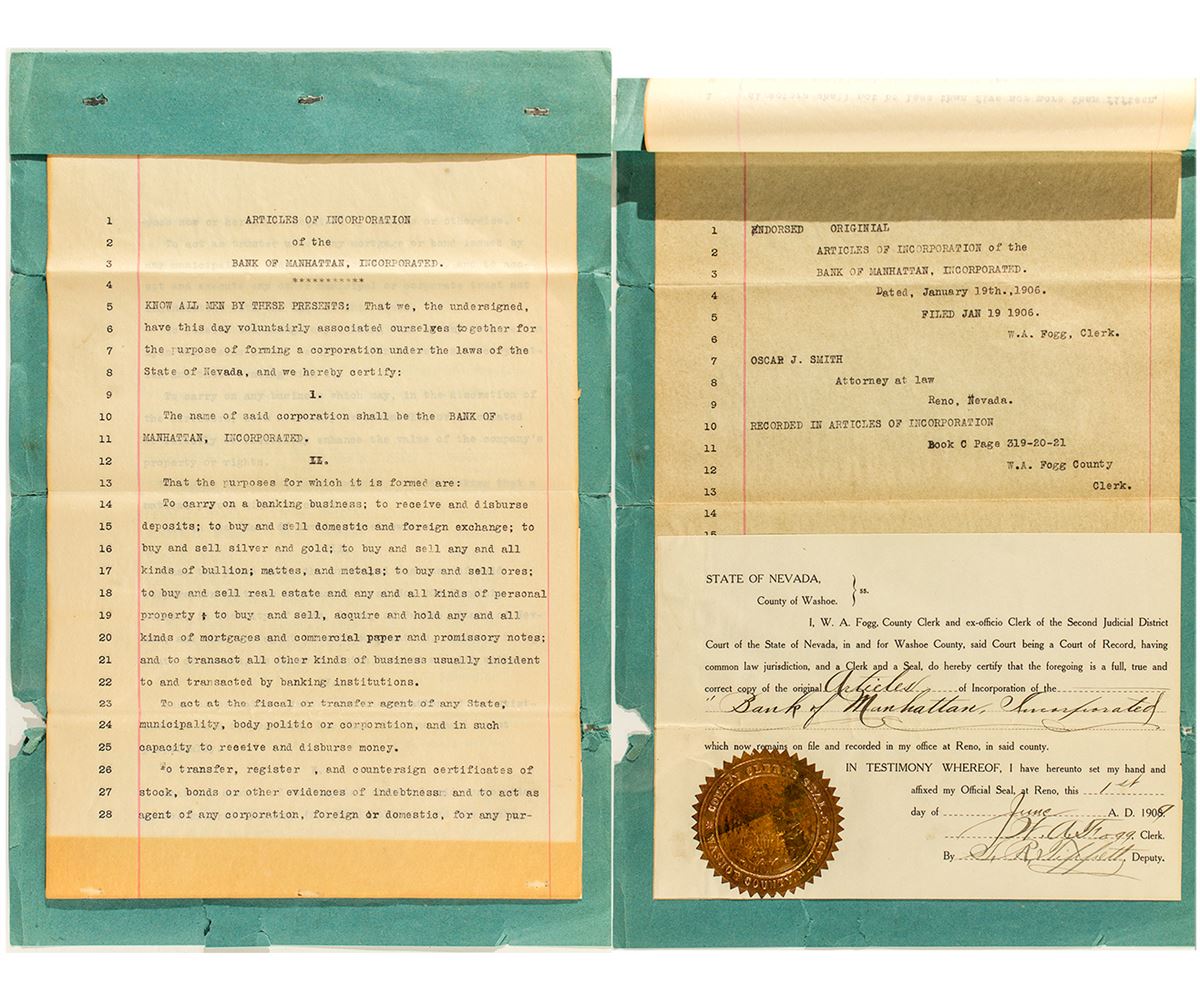 1 ARTICLES OF INCORPORATION
2 of the
3 BANK OF MANHATTAN, INCORPORATED.
4 ***********
5 KNOW ALL MEN BY THESE PRESENTS: That we, the undersigned,
6 have this day voluntairly associated ourselves together for
7 the purpose of forming a corporation under the laws of the
8 State of Nevada, and we hereby certify:
9 I.
10 The name of said corporation shall be the BANK OF
11 MANHATTAN, INCORPORATED.
12 II.
13 That the purposes for which it is formed are:
14 To carry on a banking business; to receive and disburse
15 deposits; to buy and sell domestic and foreign exchange; to
16 buy and sell silver and gold; to buy and sell any and all
17 kinds of bullion; mattes, and metals; to buy and sell ores;
18 to buy and sell real estate and any and all kinds of personal
19 property ; to buy and sell, acquire and hold any and all
20 kinds of mortgages and commercial paper and promissory notes;
21 and to transact all other kinds of business usually incident
22 to and transacted by banking institutions.
23 To act at the fiscal or transfer agent of any State,
24 municipality, body politic or corporation, and in such
25 capacity to receive and disburse money.
26 To transfer, register , and countersign certificates of
27 stock, bonds or other evidences of indebtness: and to act as
28 agent of any corporation, foreign or domestic, for any pur-
directors shall not be less than five nor more than fifteen,
1 ENDORSED ORIGINIAL
2 ARTICLES OF INCORPORATION of the
3 BANK OF MANHATTAN, INCORPORATED.
4 Dated, January 19th.,1906.
5 FILED JAN 19 1906.
6 W.A. Fogg, Clerk.
7 OSCAR J. SMITH
8 Attorney at law
9 Reno, Nevada.
10 RECORDED IN ARTICLES OF INCORPORATION
11 Book C Page 319-20-21
12 W.A. Fogg County
13 Clerk.
14
15
STATE OF NEVADA,
County of Washoe. } ss.
I, W. A. Fogg, County Clerk and ex-officio Clerk of the Second Judicial District
Court of the State of Nevada, in and for Washoe County, said Court being a Court of Record, having
common law jurisdiction, and a Clerk and a Seal, do hereby certify that the foregoing is a full, true and
correct copy of the original Articles of Incorporation of the
"Bank of Manhattan, Incorporated
which now remains on file and recorded in my office at Reno, in said county.
IN TESTIMONY WHEREOF, I have hereunto set my hand and
affixed my Official Seal, at Reno, this 1st
day of June A. D. 190
W. A. Fogg Clerk.
By Deputy.
WASHOE COUNTY, NEVADA